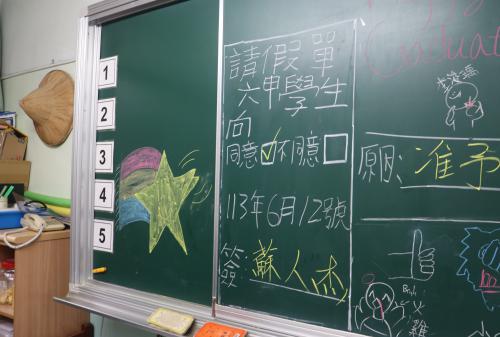 1
2
3
4
5
請假單
六甲學生
向
同意☑不同意☐
113年6月12號
簽:蘇人杰
原因:准予
Graduat